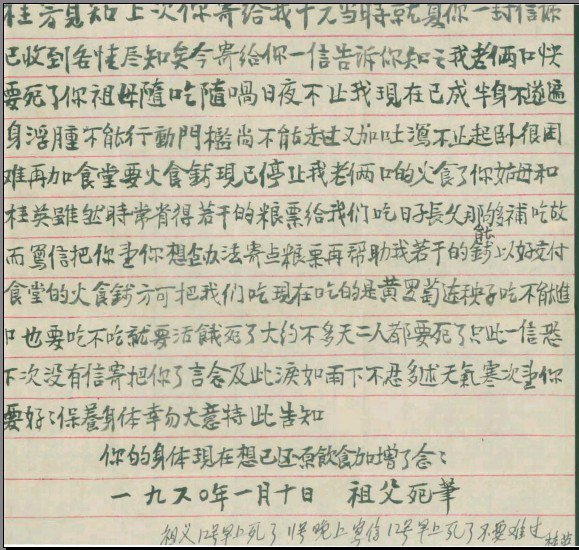 桂芳見知上次你寄給我十元当時就覆你一封信你
已收到各情尽知矣今寄給你一信告诉你知云我老俩口快
要死了你祖母隨吃隨喎日夜不止我現在已成半身不遂遍
身浮腫不能行動門檻尚不能走过又加吐瀉不止起卧很困
难再加食堂要火食錢現已停止我老俩口的火食了你姑母和
桂英雖然時常省得若干的粮票给我们吃日子長久那够補吃故
而寫信把你望你想些办法寄点粮票再帮助我若干的錢能以好交付
食堂的火食錢方可把我们吃現在吃的是黄罗萄連秧子吃不能進
口也要吃不吃就要活餓死了大约不多天二人都要死了只此一信恐
下次没有信寄把你了言念及此淚如雨下不忍多述天氣寒次望你
要好ミ保養身体幸勿大意特此告知
你的身体現在想已还原飲食加增了念ミ
一九六〇年一月十日 祖父死筆
祖父12号早上死了 11号晚上寫信12号早上死了不要难过 桂英